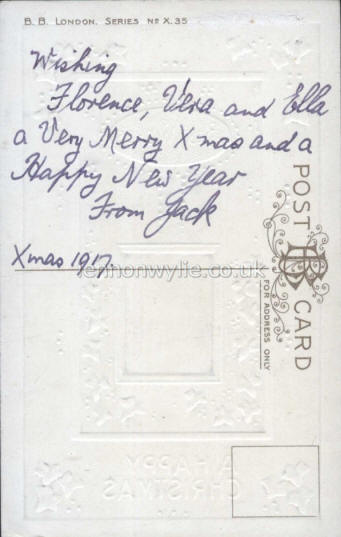 B. B. LONDON. SERIES Nº X. 35
Wishing
Florence, Vera and Ella
a Very Merry Xmas and a
Happy New Year
From Jack
Xmas 1917.
lennonwylie.co.uk
POST CARD
BB
FOR ADDRESS ONLY
A HAPPY
CHRISTMAS